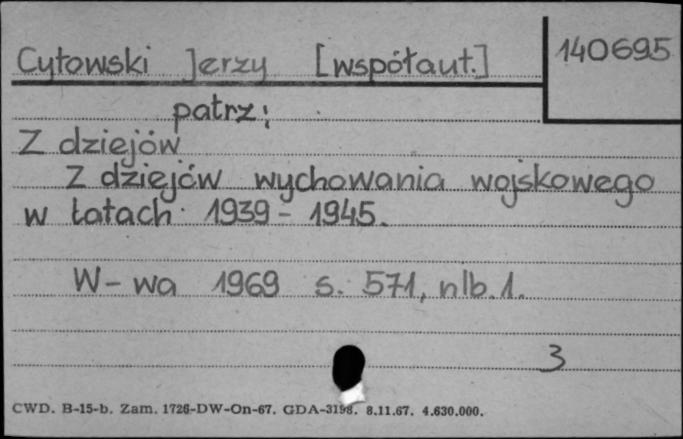 Cytowski Jerzy [współaut.] 140695
patrz:
Z dziejów
Z dziejów wychowania wojskowego
w latach 1939 - 1945.
W-wa 1969 s. 571, nlb. 1.
3
CWD. B-15-b. Zam. 1726-DW-On-67. GDA-3198. 8.11.67. 4.630.000.